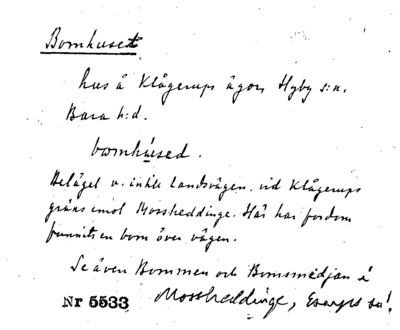 Bomhuset
hus å Klågerups ägor, Hyby s:n.
Bara h:d.
bomhúsed.
Beläget v. inkle landsvägen, vid Klågerups
gräns emot Mossheddinge. Här har fordom
funnits en bom över vägen.
Se även Bommen och Bomsmedjan i
Nr 5533 Mossheddinge,